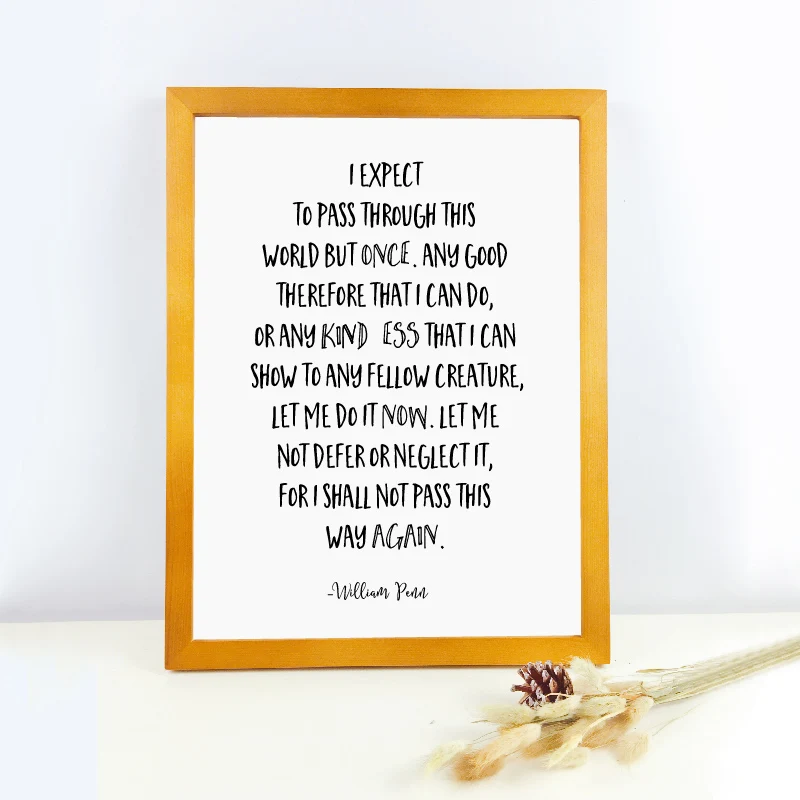 I EXPECT
TO PASS THROUGH THIS
WORLD BUT ONCE. ANY GOOD
THEREFORE THAT I CAN DO,
OR ANY KIND ESS THAT I CAN
SHOW TO ANY FELLOW CREATURE,
LET ME DO IT NOW. LET ME
NOT DEFER OR NEGLECT IT,
FOR I SHALL NOT PASS THIS
WAY AGAIN.
-William Penn